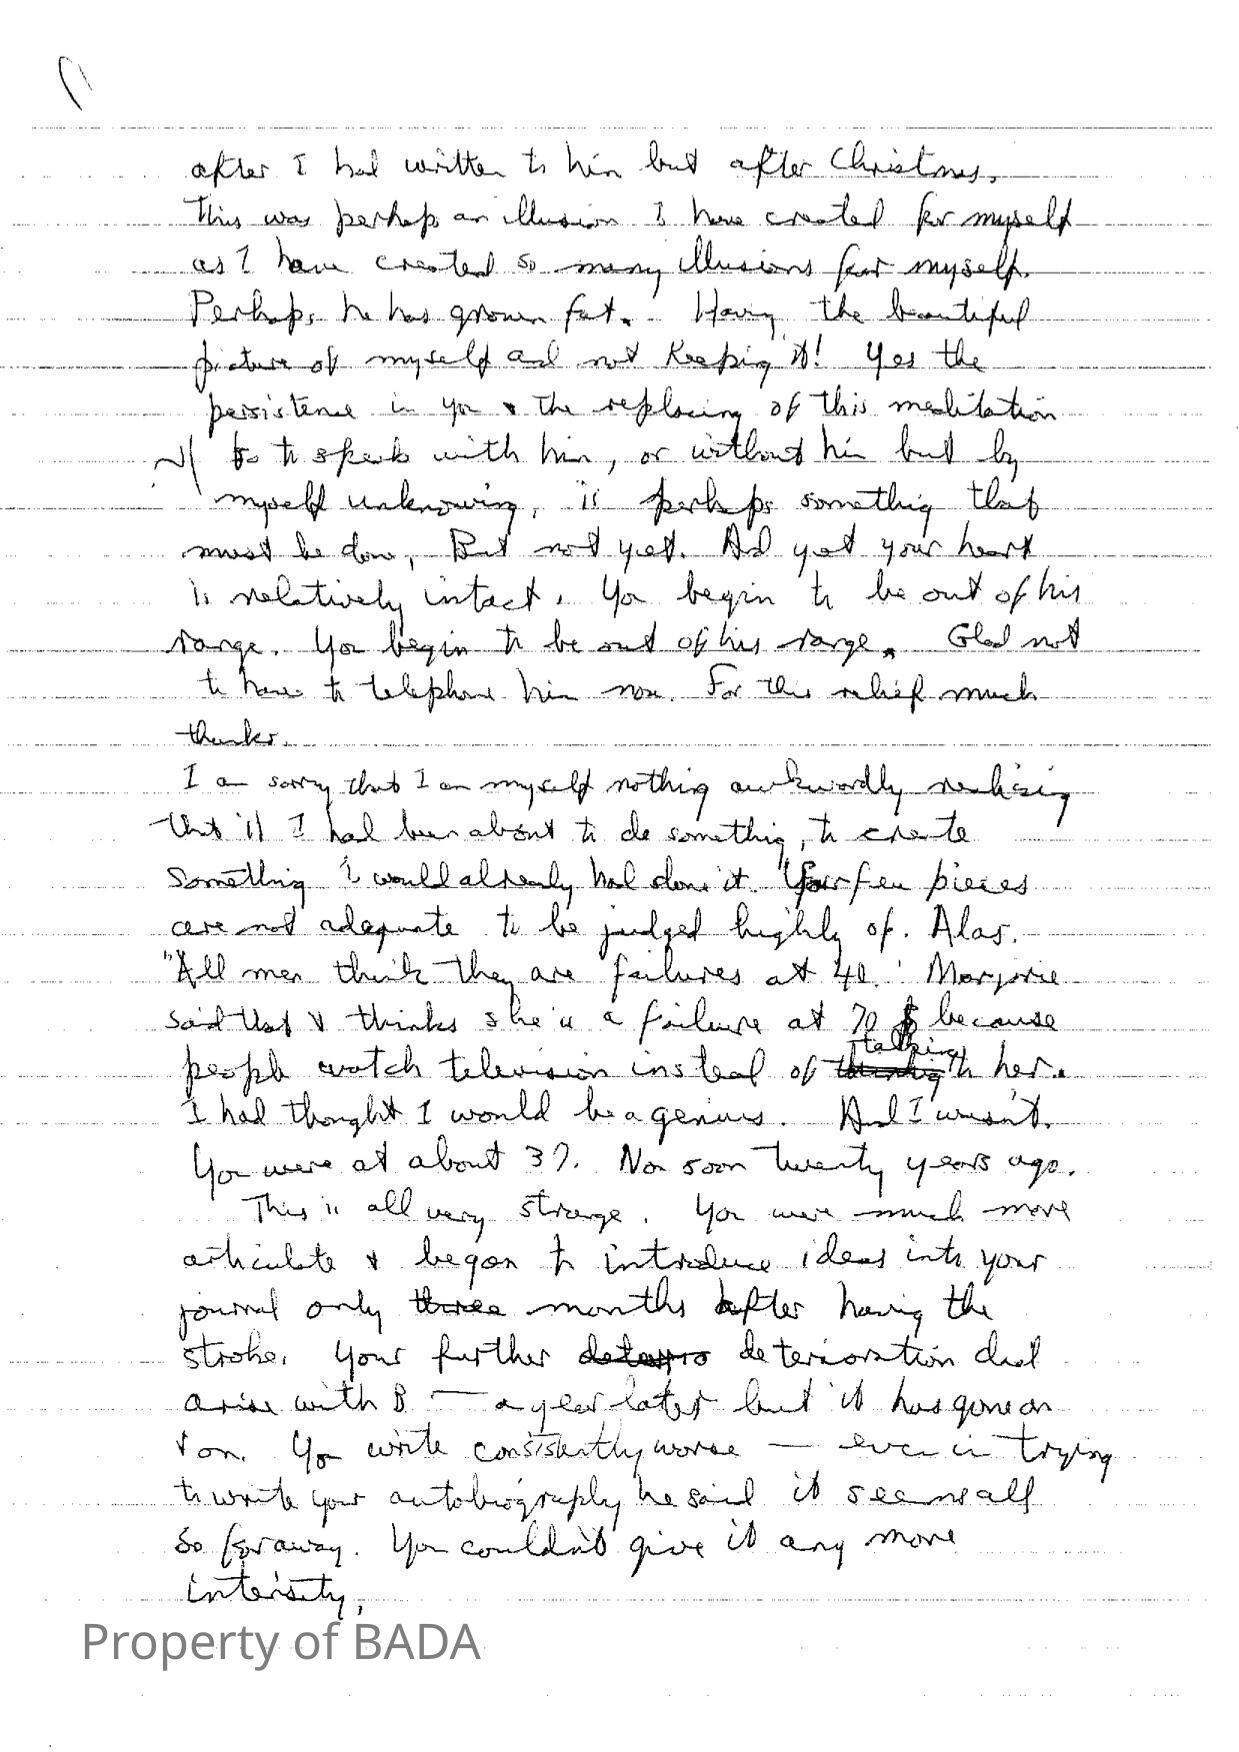 after I had written to him but after Christmas.
This was perhaps an illusion I have created for myself
as I have created so many illusions for myself.
Perhaps he has grown fat. Having the beautiful
picture of myself and not keeping it! Yes the
persistence in you & the replacing of this meditation
to speak with him, or without him but by
myself unknowing, is perhaps something that
must be done, But not yet. And yet your heart
is relatively intact. You begin to be out of his
range. You begin to be out of his range. Glad not
to have to telephone him now. For this relief much
thanks.
I am sorry that I am myself nothing awkwardly realising
that if I had been about to do something, to create
something I would already had done it. Your few pieces
are not adequate to be judged highly of. Alas.
"All men think they are failures at 40." Marjorie
said that & thinks she is a failure at 70 because
people watch television instead of thinking talking to her.
I had thought I would be a genius. And I wasn't.
You were at about 37. Now soon twenty years ago.
This is all very strange. You were much more
articulate & began to introduce ideas into your
journal only three months after having the
stroke. Your further deterio deterioration did
arise with B — a year later but it has gone on
& on. You write consistently worse — even in trying
to write your autobiography he said it seems all
so far away. You couldn't give it any more
intensity,
Property of BADA